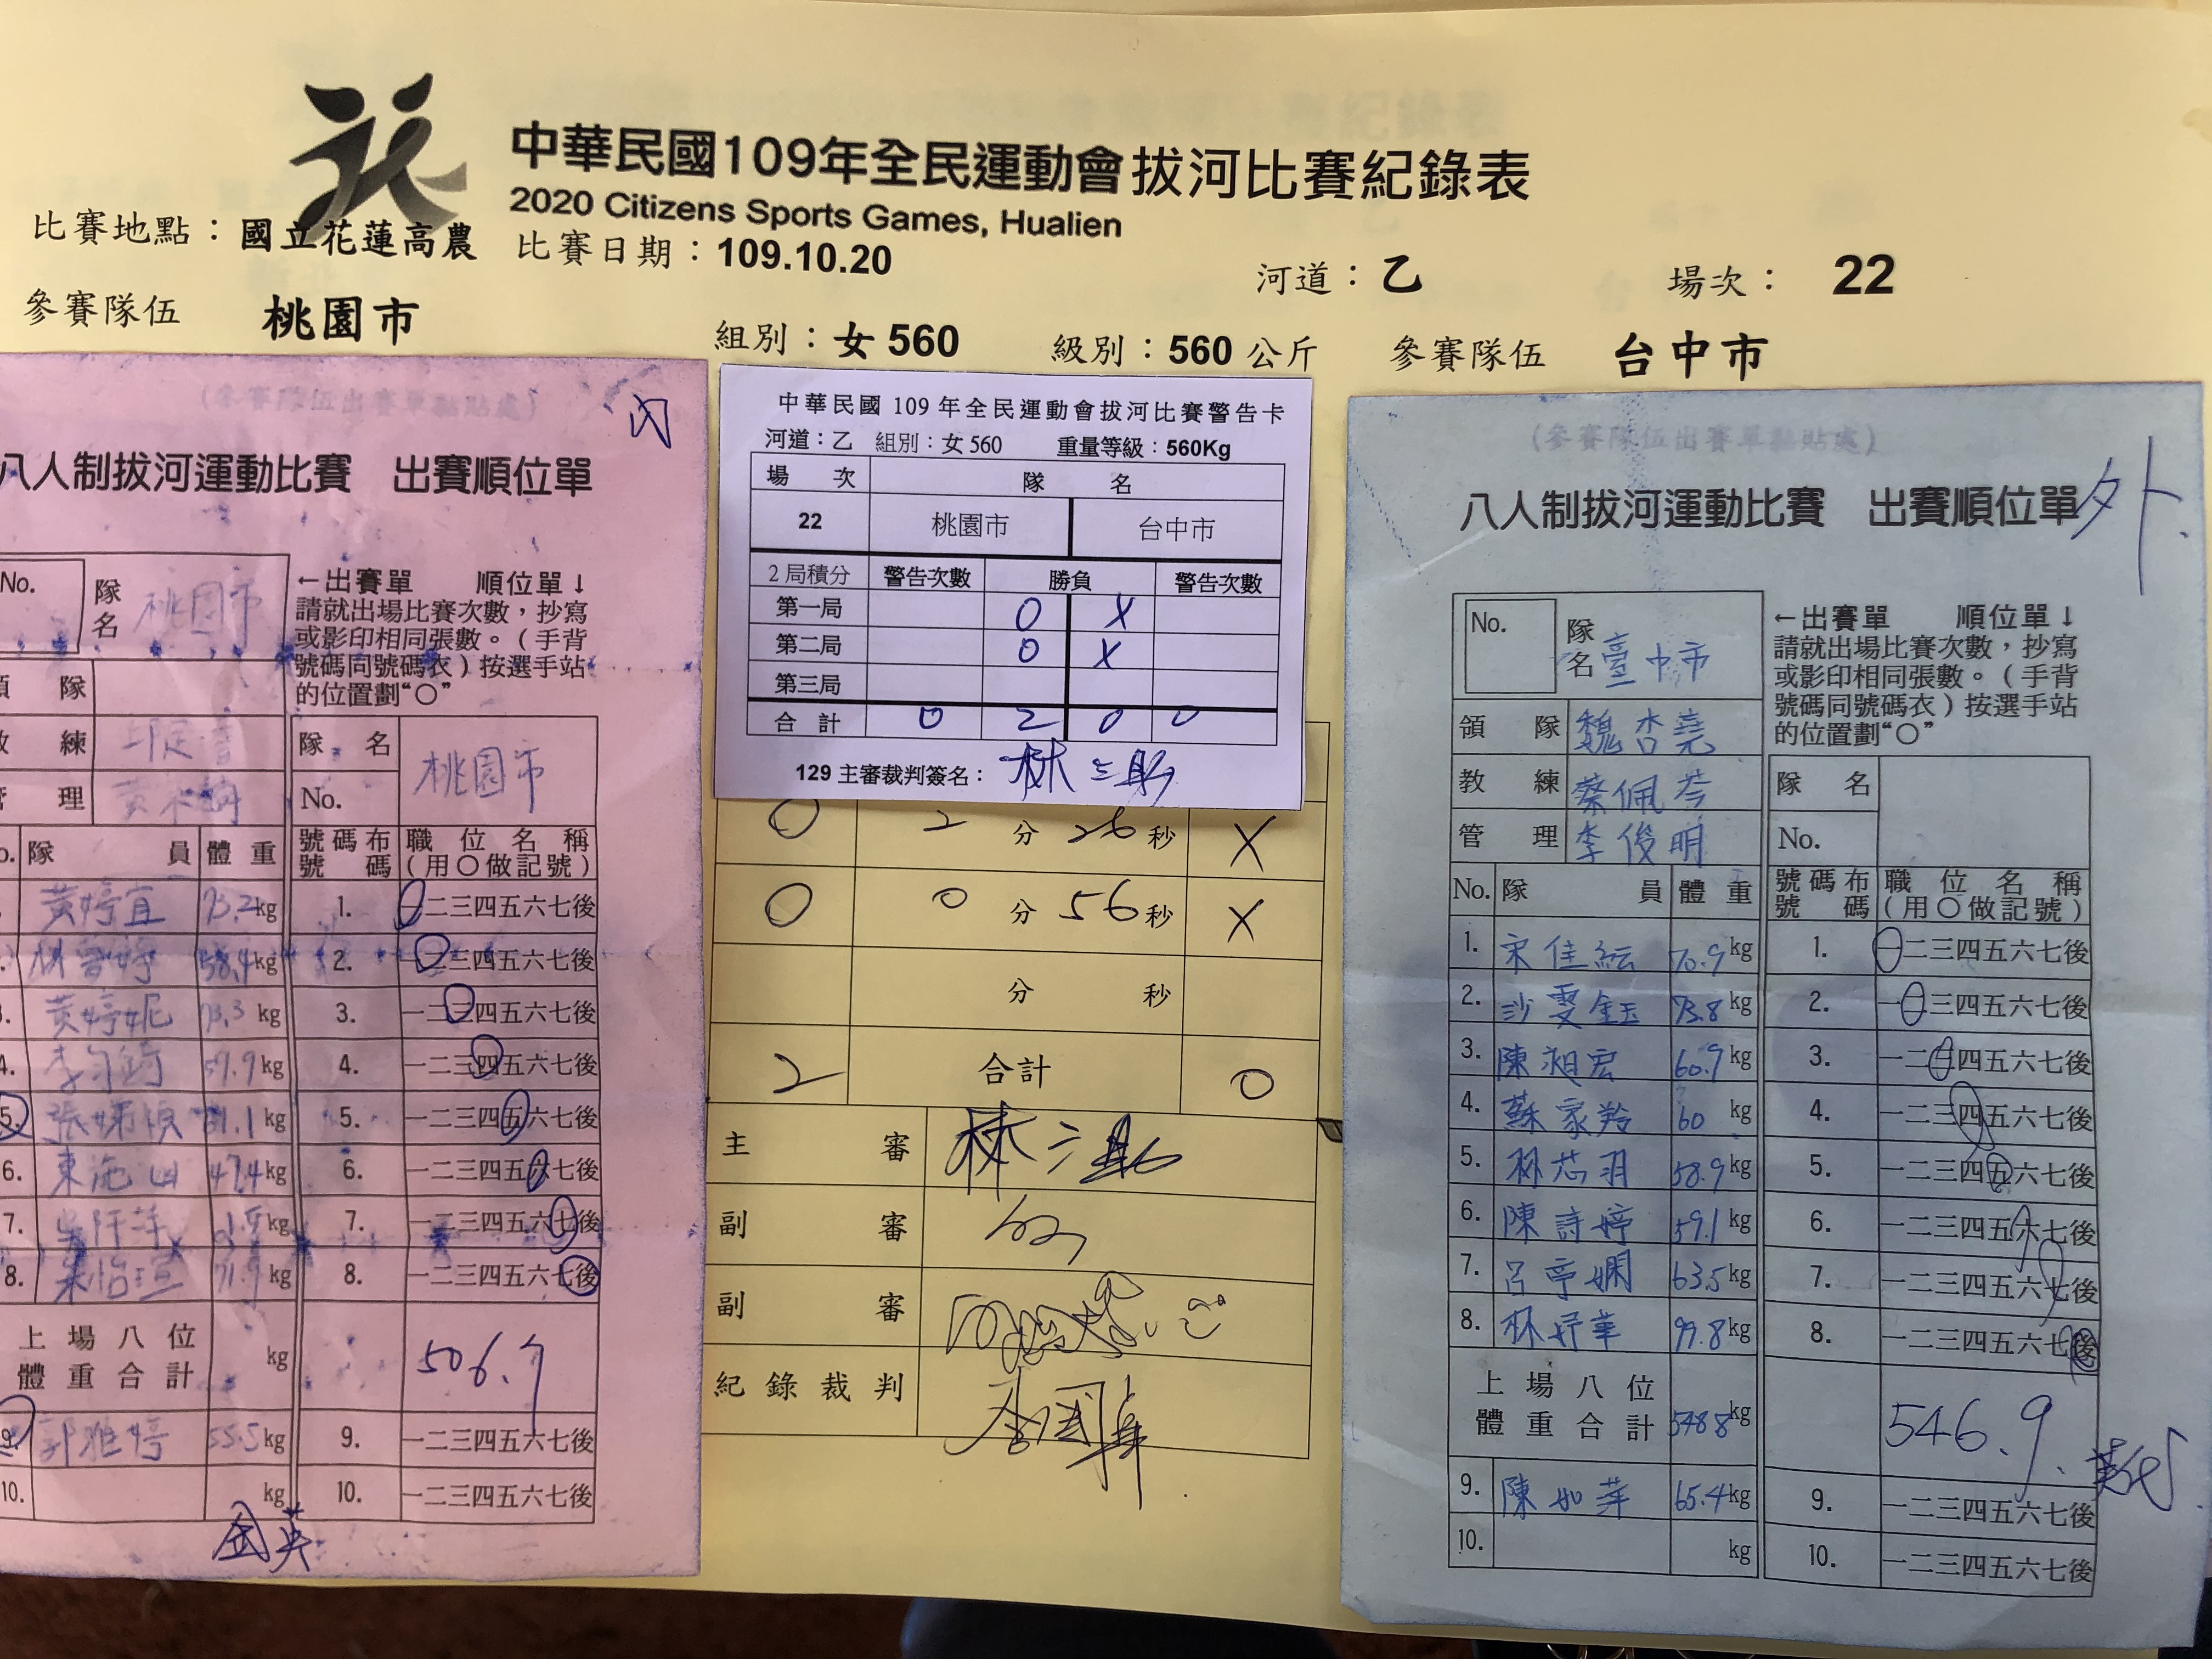 中華民國109年全民運動會拔河比賽紀錄表
2020 Citizens Sports Games, Hualien
比賽地點：國立花蓮高農 比賽日期：109.10.20 河道：乙 場次： 22
參賽隊伍 桃園市 組別：女 560 級別：560 公斤 參賽隊伍 台中市
(參賽隊伍出賽單黏貼處)
內
八人制拔河運動比賽 出賽順位單
No. 隊名 桃園市
←出賽單 順位單↓
請就出場比賽次數，抄寫
或影印相同張數。（手背
號碼同號碼衣）按選手站
的位置劃“○”
隊
練
理
隊名 桃園市
No.
隊員 體重 號碼布號碼 職位名稱（用○做記號）
黃婷宜 73.2kg 1. 一二三四五六七後
58.4kg 2. 一二三四五六七後
3. 黃婷妮 73.3 kg 3. 一二三四五六七後
4. kg 4. 一二三四五六七後
5. kg 5. 一二三四五六七後
6. 47.4kg 6. 一二三四五六七後
7. kg 7. 一二三四五六七後
8. kg 8. 一二三四五六七後
上場八位體重合計 kg 506.7
9. 郭雅婷 55.5kg 9. 一二三四五六七後
10. kg 10. 一二三四五六七後
金英
中華民國 109 年全民運動會拔河比賽警告卡
河道：乙 組別：女 560 重量等級：560Kg
場次 隊名
22 桃園市 台中市
2 局積分 警告次數 勝負 警告次數
第一局 O X
第二局 O X
第三局
合計 0 2 0 0
129 主審裁判簽名： 林三財
O 2 分 26 秒 X
O 0 分 56 秒 X
分 秒
2 合計 0
主審
副審
副審
紀錄裁判
(參賽隊伍出賽單黏貼處)
外
八人制拔河運動比賽 出賽順位單
No. 隊名 臺中市
←出賽單 順位單↓
請就出場比賽次數，抄寫
或影印相同張數。（手背
號碼同號碼衣）按選手站
的位置劃“○”
領隊 魏杏堯
教練 蔡佩芩
管理 李俊明
隊名
No.
No. 隊員 體重 號碼布號碼 職位名稱（用○做記號）
1. 宋佳紜 70.9kg 1. 一二三四五六七後
2. 沙雯鈺 73.8kg 2. 一二三四五六七後
3. 陳湘宏 60.9kg 3. 一二三四五六七後
4. 蘇家羚 60 kg 4. 一二三四五六七後
5. 林芯羽 58.9kg 5. 一二三四五六七後
6. 陳詩婷 59.1kg 6. 一二三四五六七後
7. 呂亭嫻 63.5kg 7. 一二三四五六七後
8. 林妤華 99.8kg 8. 一二三四五六七後
上場八位體重合計 548.8kg 546.9
9. 陳如萍 65.4kg 9. 一二三四五六七後
10. kg 10. 一二三四五六七後